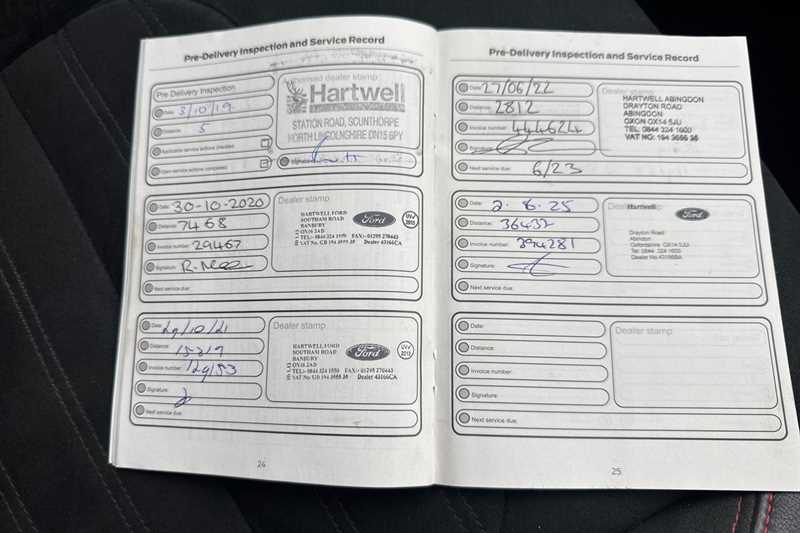 Pre-Delivery Inspection and Service Record
Pre Delivery Inspection
Date: 3/10/19
Distance: 5
Applicable service actions checked
Open service actions completed
Authorised dealer stamp
Hartwell
STATION ROAD, SCUNTHORPE
NORTH LINCOLNSHIRE DN15 6PY
Signature
Date: 30-10-2020
Distance: 7468
Invoice number: 29467
Signature:
Next service due:
Dealer stamp
HARTWELL FORD
SOUTHAM ROAD
BANBURY
OX16 2AD
TEL:- 0844 324 1950 FAX:- 01295 270443
VAT No. GB 194 3655 35 Dealer 43166CA
Ford
Date: 29/10/21
Distance:
Invoice number:
Signature:
Next service due:
Dealer stamp
HARTWELL FORD
SOUTHAM ROAD
BANBURY
OX16 2AD
TEL:- 0844 324 1950 FAX:- 01295 270443
VAT No. GB 194 3655 35 Dealer 43166CA
Ford
24
Pre-Delivery Inspection and Service Record
Date: 27/06/22
Distance: 2812
Invoice number: 444624
Signature:
Next service due: 6/23
Dealer stamp
HARTWELL ABINGDON
DRAYTON ROAD
ABINGDON
OXON OX14 5JU
TEL: 0844 324 1600
VAT NO: 194 3655 35
Date: 2.6.25
Distance: 36432
Invoice number: 394281
Signature:
Next service due:
Hartwell
Ford
Drayton Road
Abingdon
Oxfordshire OX14 5JU
Tel: 0844 324 1600
Date:
Distance:
Invoice number:
Signature:
Next service due:
Dealer stamp
25